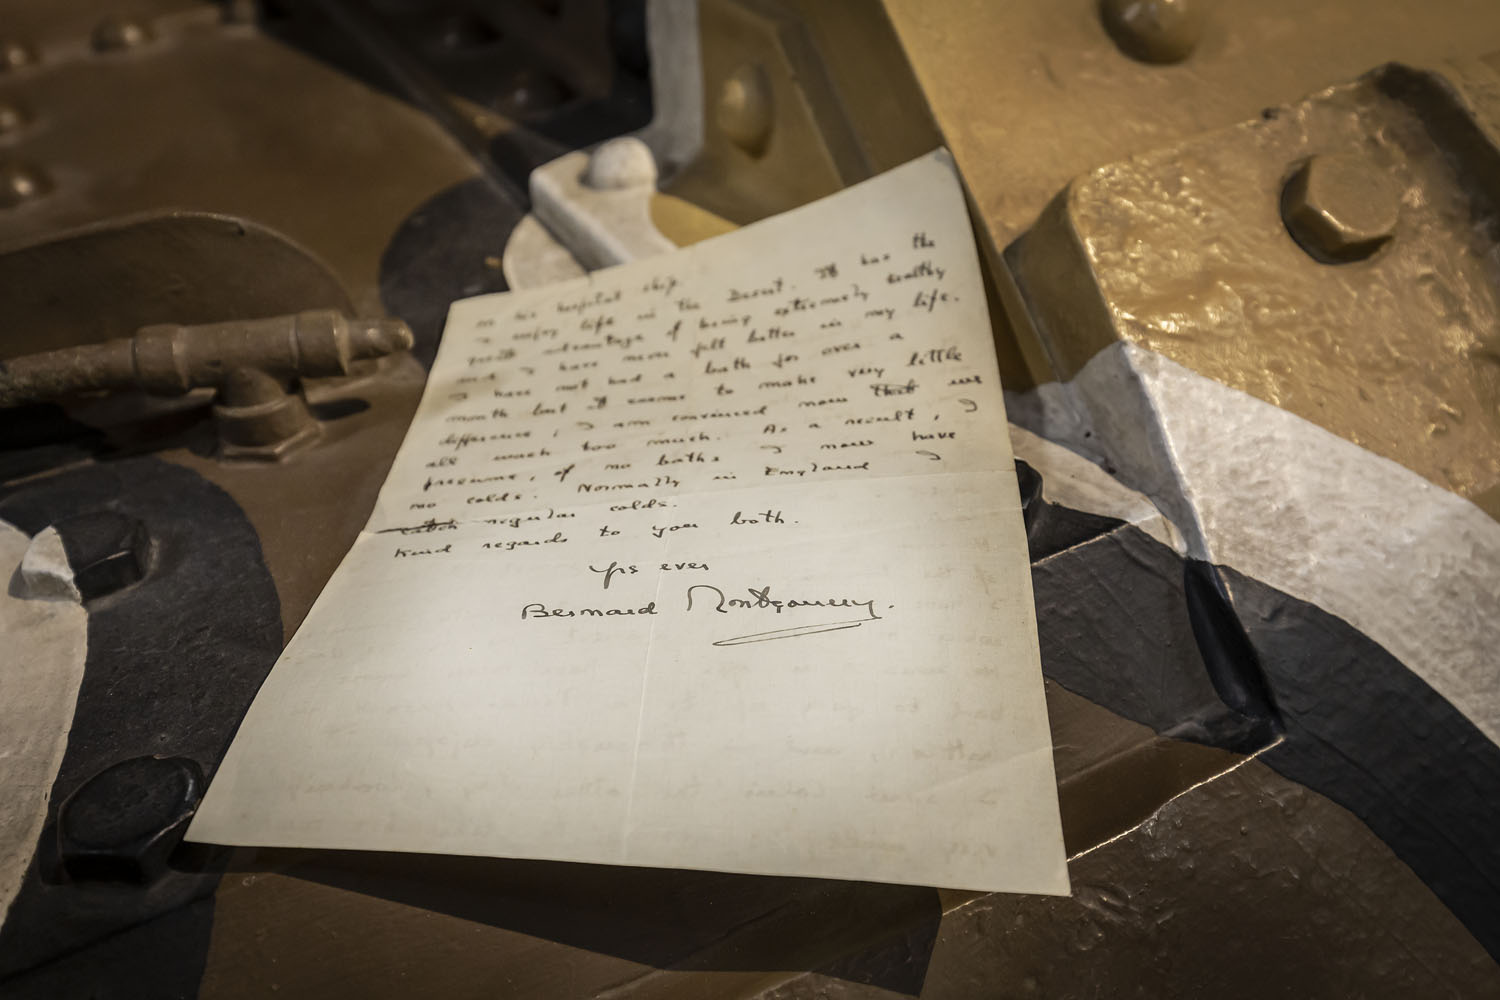 in his hospital ship.
I enjoy life in the Desert. It has the
great advantage of being extremely healthy
and I have never felt better in my life.
I have not had a bath for over a
month but it seems to make very little
difference; I am convinced now that we
all wash too much. As a result, I
presume, of no baths I now have
no colds. Normally in England I
catch regular colds.
Kind regards to you both.
Yrs ever
Bernard Montgomery.